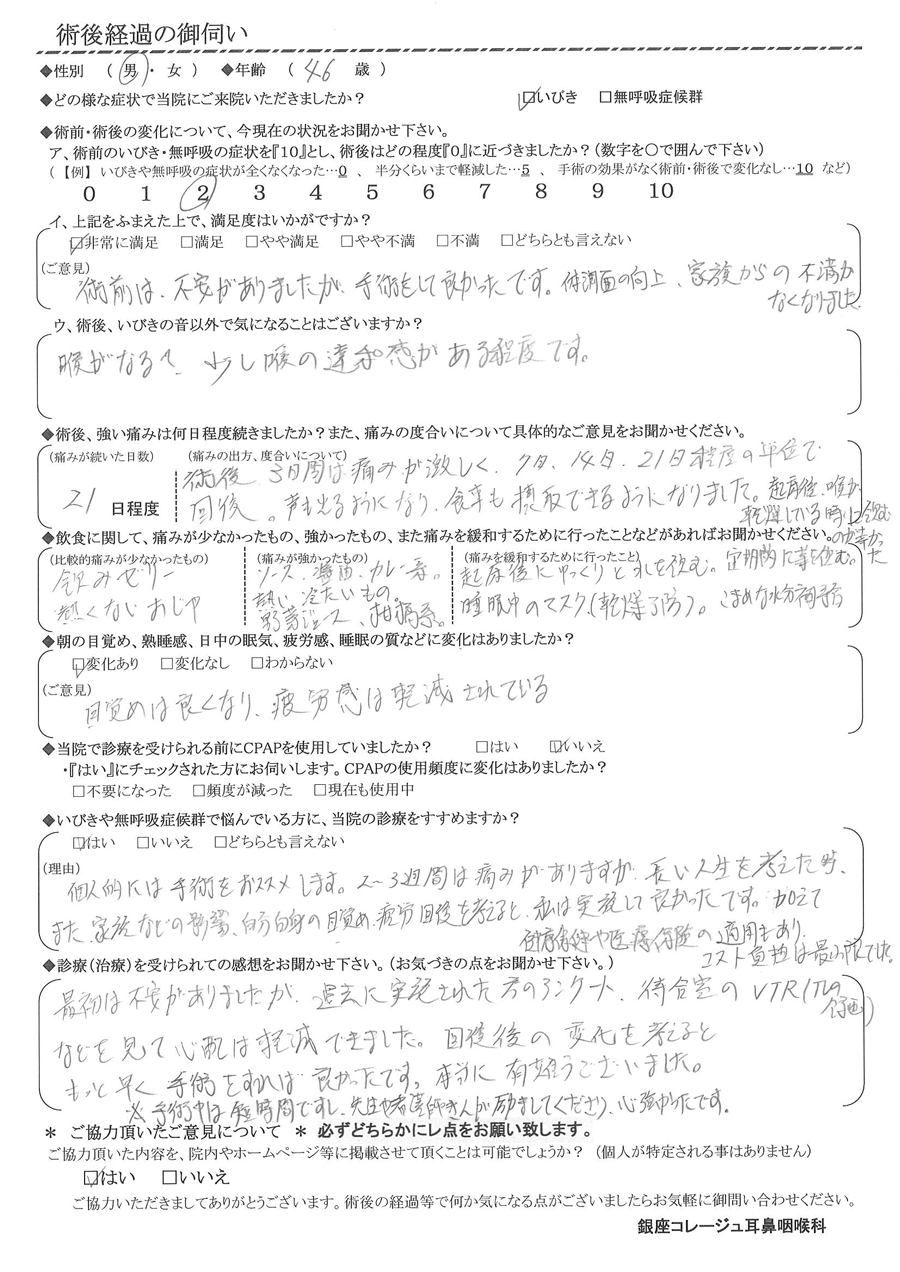 術後経過の御伺い
◆性別 （ 男 ・ 女 ） ◆年齢 （ 46 歳 ）
◆どの様な症状で当院にご来院いただきましたか？ ☑いびき □無呼吸症候群
◆術前・術後の変化について、今現在の状況をお聞かせ下さい。
ア、術前のいびき・無呼吸の症状を『10』とし、術後はどの程度『0』に近づきましたか？（数字を○で囲んで下さい）
（【例】 いびきや無呼吸の症状が全くなくなった…0 、 半分くらいまで軽減した…5 、 手術の効果がなく術前・術後で変化なし…10 など）
0 1 2 3 4 5 6 7 8 9 10
イ、上記をふまえた上で、満足度はいかがですか？
☑非常に満足 □満足 □やや満足 □やや不満 □不満 □どちらとも言えない
（ご意見）
術前は、不安がありましたが、手術をして良かったです。体調面の向上、家族からの不満が
なくなりました。
ウ、術後、いびきの音以外で気になることはございますか？
喉がなる？、少し喉の違和感がある程度です。
◆術後、強い痛みは何日程度続きましたか？また、痛みの度合いについて具体的なご意見をお聞かせください。
（痛みが続いた日数） （痛みの出方、度合いについて）
21 日程度
術後、3日間は痛みが激しく、7日、14日、21日程度の単位で
回復。声も出るようになり、食事も摂取できるようになりました。起床後、喉が
乾燥している時に飲む
のは辛かった
◆飲食に関して、痛みが少なかったもの、強かったもの、また痛みを緩和するために行ったことなどがあればお聞かせください。
（比較的痛みが少なかったもの） （痛みが強かったもの） （痛みを緩和するために行ったこと）
飲みゼリー
熱くないおじや
ソース、醤油、カレー系。
熱い、冷たいもの。
野菜ジュース、柑橘系。
起床後にゆっくりと水を飲む。定期的に薬を飲む。
睡眠中のマスク（乾燥予防）。こまめな水分補給
◆朝の目覚め、熟睡感、日中の眠気、疲労感、睡眠の質などに変化はありましたか？
☑変化あり □変化なし □わからない
（ご意見）
目覚めは良くなり、疲労感は軽減されている
◆当院で診療を受けられる前にCPAPを使用していましたか？ □はい ☑いいえ
・『はい』にチェックされた方にお伺いします。CPAPの使用頻度に変化はありましたか？
□不要になった □頻度が減った □現在も使用中
◆いびきや無呼吸症候群で悩んでいる方に、当院の診療をすすめますか？
☑はい □いいえ □どちらとも言えない
（理由）
個人的には手術をおススメします。2〜3週間は痛みがありますが、長い人生を考えた時、
また、家族などの影響、自分自身の目覚め、疲労回復を考えると、私は実施して良かったです。加えて
健康保険や医療保険の適用もあり、
コスト負担は最小限でした。
◆診療（治療）を受けられての感想をお聞かせ下さい。（お気づきの点をお聞かせ下さい。）
最初は不安がありましたが、過去に実施された方のアンケート、待合室のVTR(TVの
などを見て心配は軽減できました。回復後の変化を考えると
もっと早く手術をすれば良かったです。本当に有難うございました。
※手術中は短時間ですし、先生や看護師さんが励ましてくださり、心強かったです。
＊ ご協力頂いたご意見について ＊ 必ずどちらかにレ点をお願い致します。
ご協力頂いた内容を、院内やホームページ等に掲載させて頂くことは可能でしょうか？ （個人が特定される事はありません）
☑はい □いいえ
ご協力いただきましてありがとうございます。術後の経過等で何か気になる点がございましたらお気軽に御問い合わせください。
銀座コレージュ耳鼻咽喉科